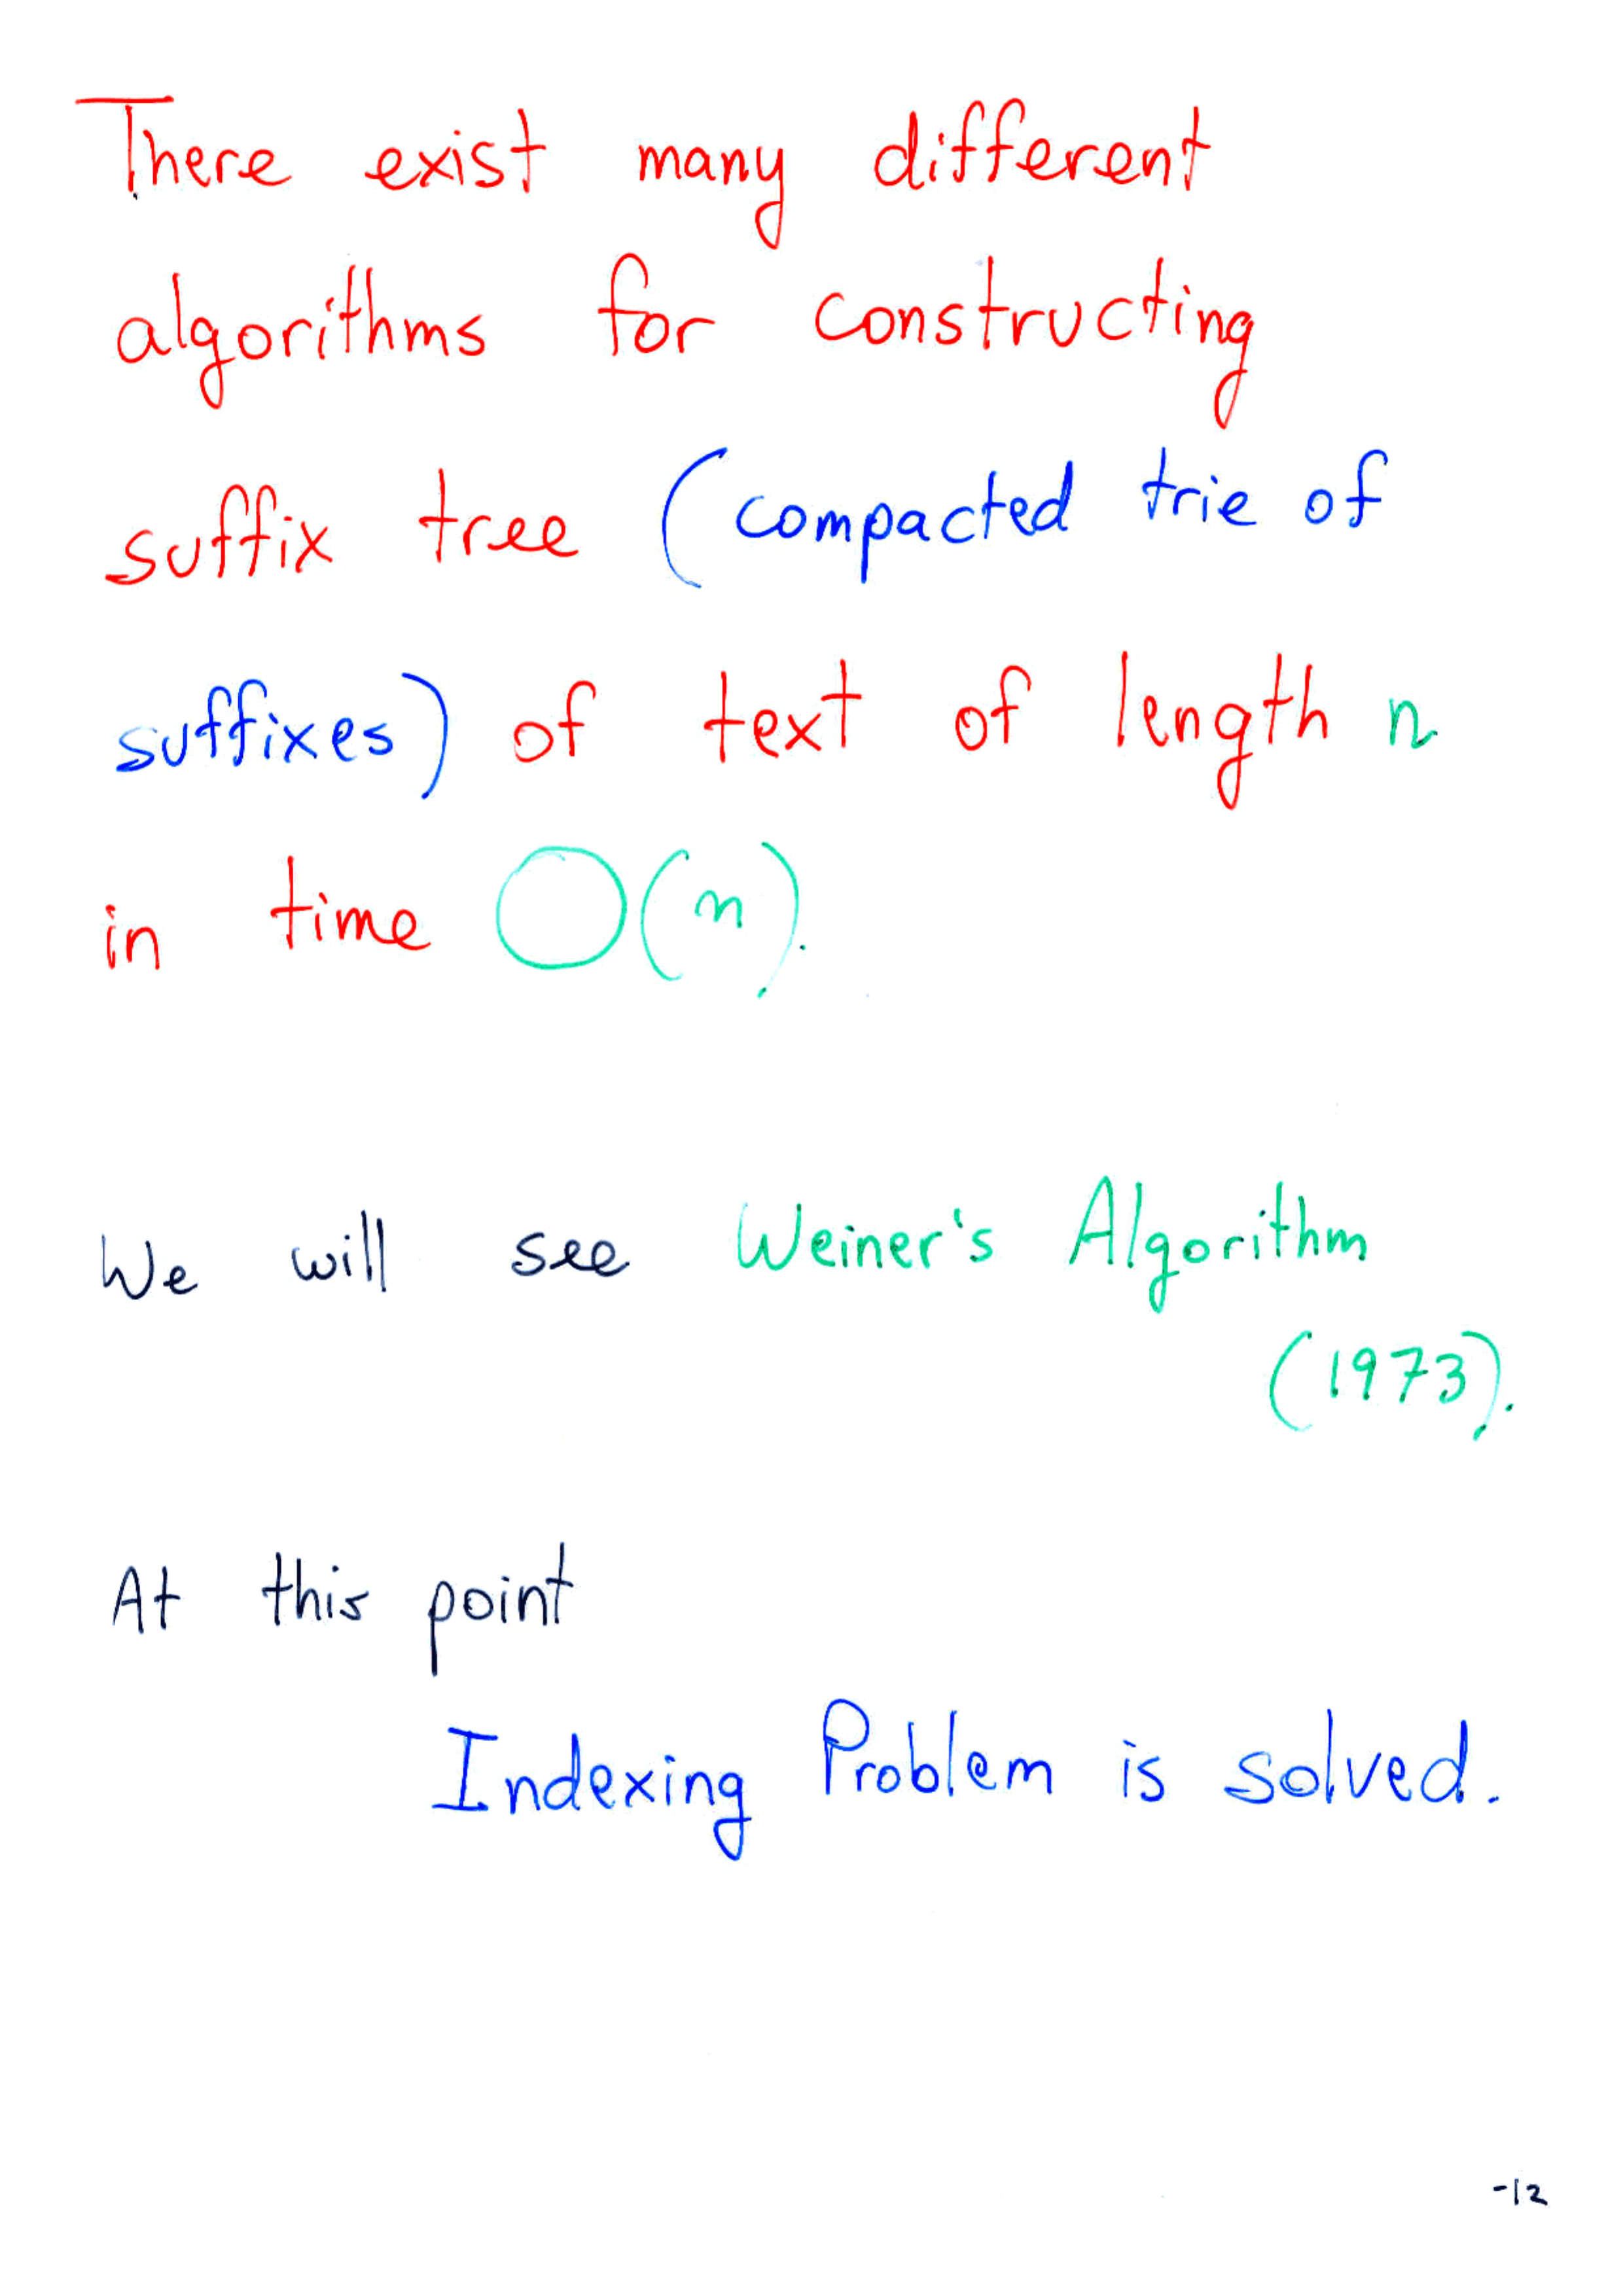 There exist many different
algorithms for constructing
suffix tree (compacted trie of
suffixes) of text of length n
in time O(n).
We will see Weiner's Algorithm
(1973).
At this point
Indexing Problem is solved.
-12